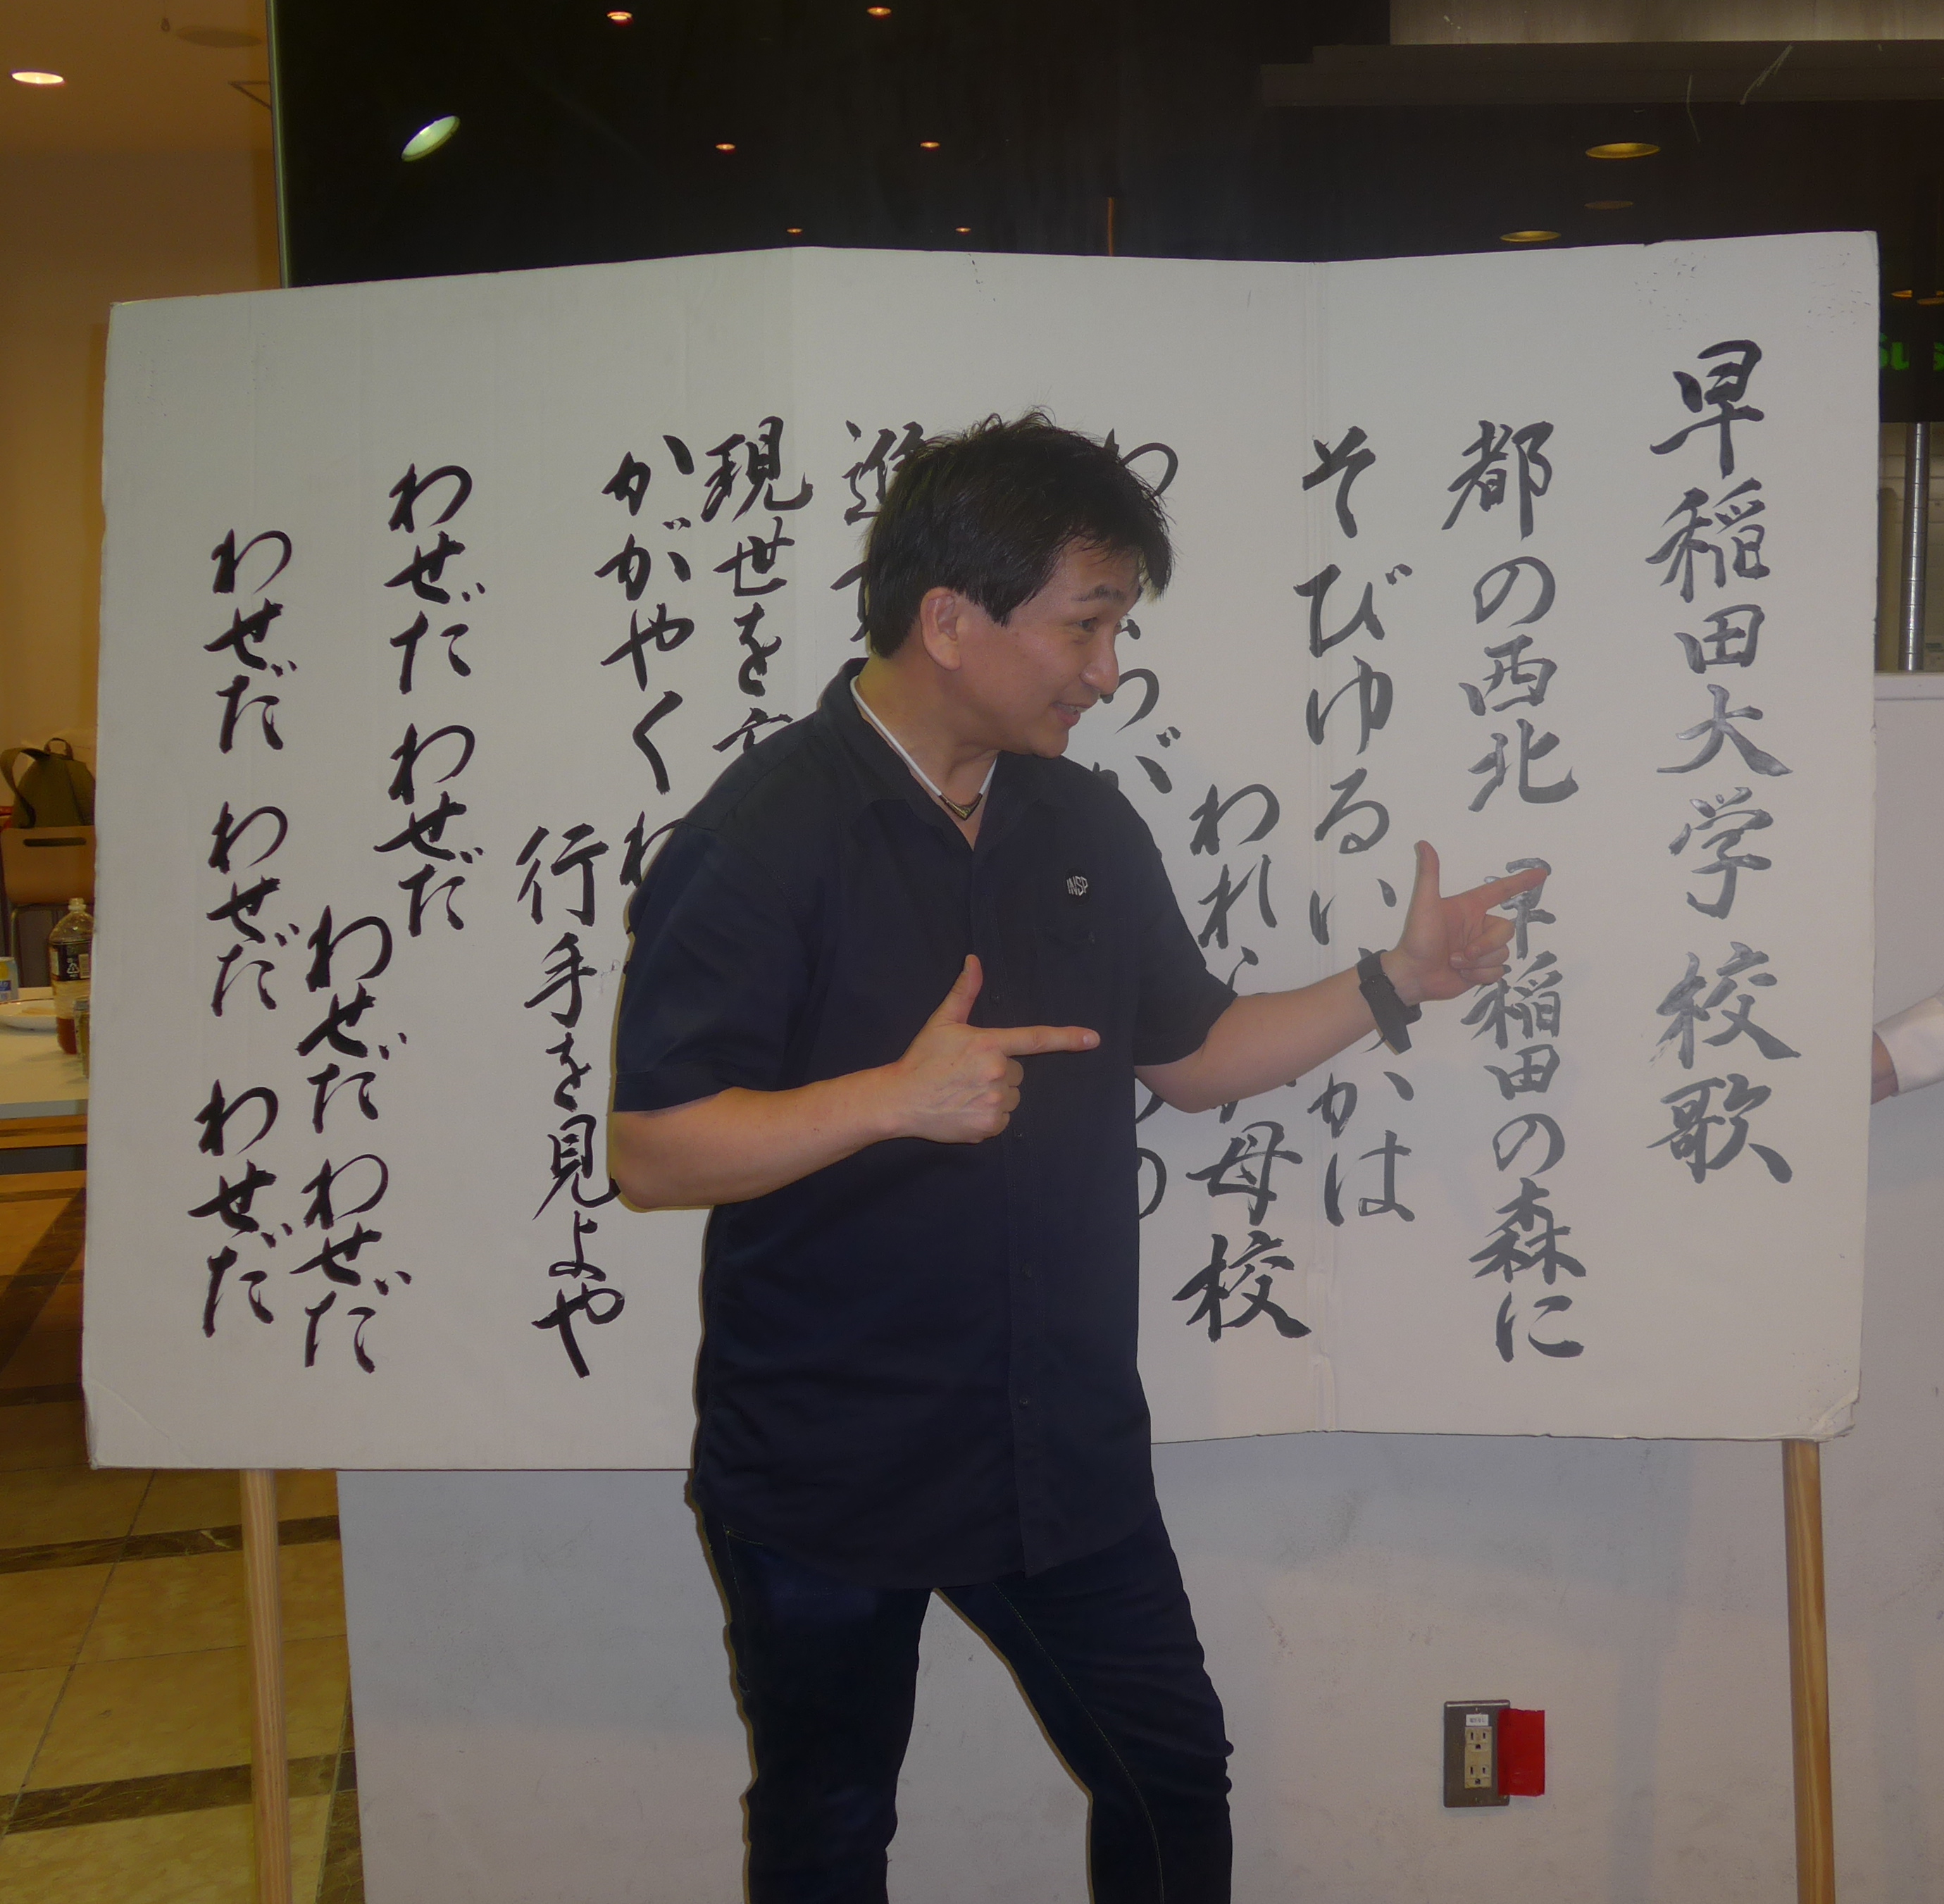 早稲田大学 校歌
都の西北 早稲田の森に
そびゆるいらかは
われら 母校
わ らが の
進
現世を
かがやく
行手を見よや
わせだ わせだ
わせだ わせだ
わせだ わせだ わせだ
INSP